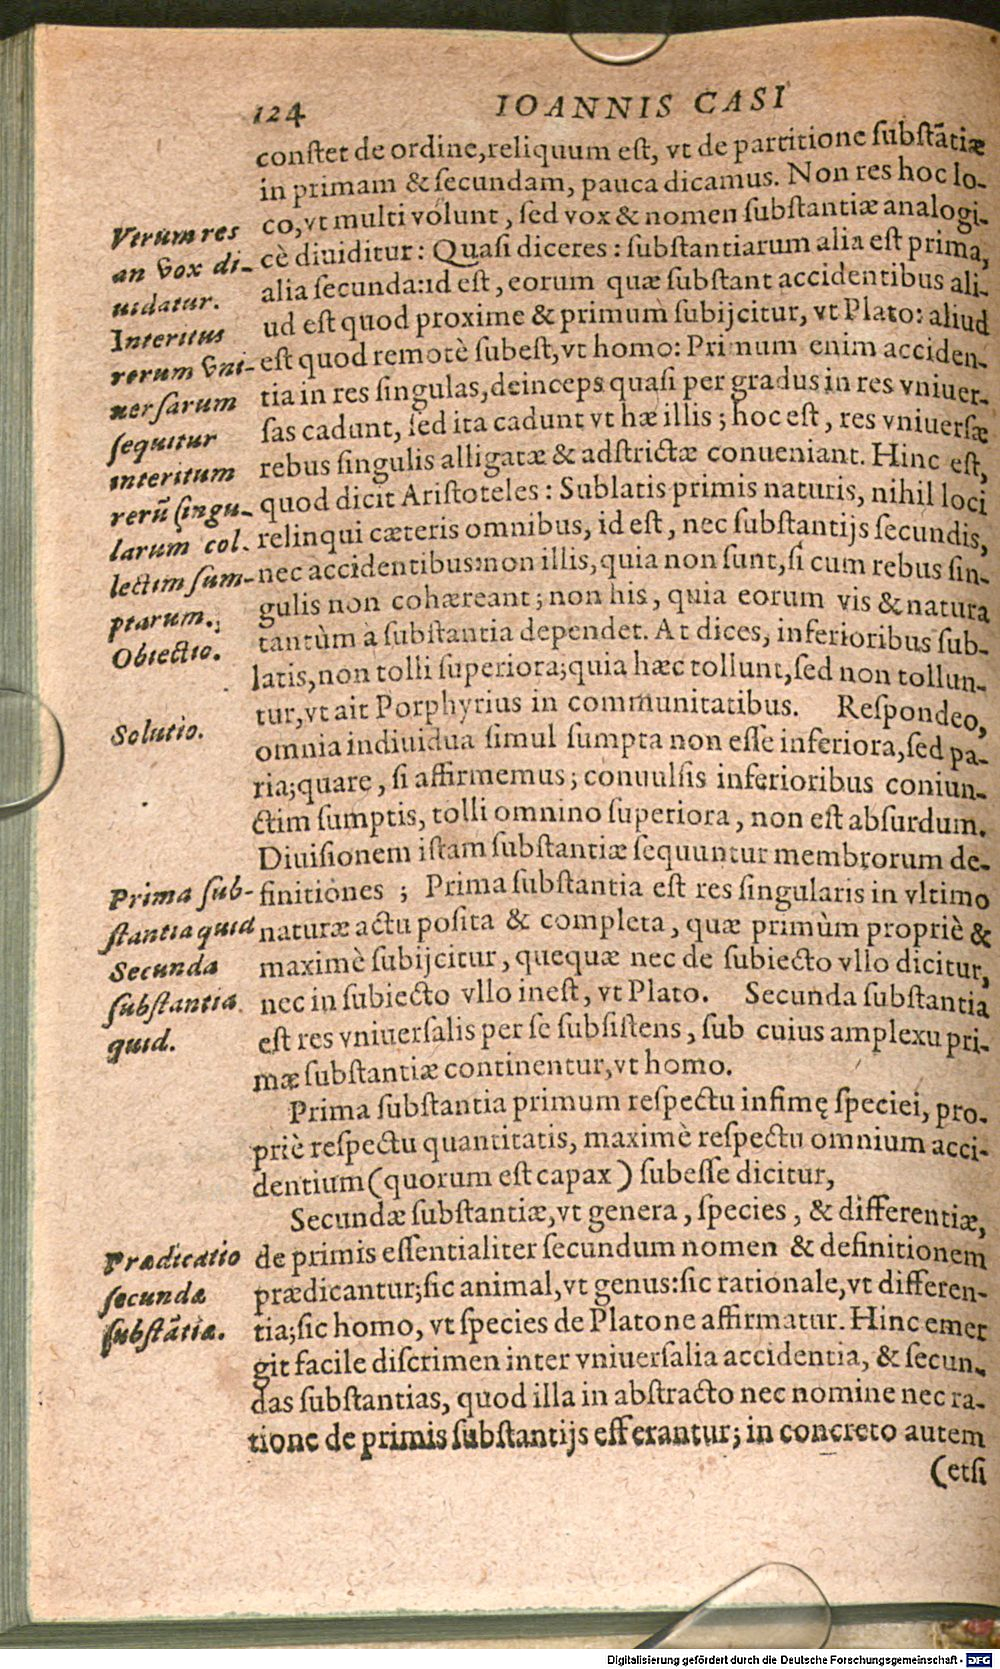 124 IOANNIS CASI
constet de ordine, reliquum est, vt de partitione substãtiæ
in primam & secundam, pauca dicamus. Non res hoc lo-
co, vt multi volunt, sed vox & nomen substantiæ analogi-
cè diuiditur: Quasi diceres: substantiarum alia est prima,
alia secunda: id est, eorum quæ substant accidentibus ali-
ud est quod proxime & primùm subijcitur, vt Plato: aliud
est quod remotè subest, vt homo: Primum enim acciden-
tia in res singulas, deinceps quasi per gradus in res vniuer-
sas cadunt, sed ita cadunt vt hæ illis; hoc est, res vniuersæ
rebus singulis alligatæ & adstrictæ conueniant. Hinc est,
quod dicit Aristoteles: Sublatis primis naturis, nihil loci
relinqui cæteris omnibus, id est, nec substantijs secundis,
nec accidentibus: non illis, quia non sunt, si cum rebus sin-
gulis non cohæreant; non his, quia eorum vis & natura
tantùm à substantia dependet. At dices, inferioribus sub-
latis, non tolli superiora; quia hæc tollunt, sed non tollun-
tur, vt ait Porphyrius in communitatibus. Respondeo,
omnia indiuidua simul sumpta non esse inferiora, sed pa-
ria; quare, si affirmemus; conuulsis inferioribus coniun-
ctim sumptis, tolli omnino superiora, non est absurdum.
Diuisionem istam substantiæ sequuntur membrorum de-
finitiones; Prima substantia est res singularis in vltimo
naturæ actu posita & completa, quæ primùm propriè &
maximè subijcitur, quequæ nec de subiecto vllo dicitur,
nec in subiecto vllo inest, vt Plato. Secunda substantia
est res vniuersalis per se subsistens, sub cuius amplexu pri-
mæ substantiæ continentur, vt homo.
Prima substantia primum respectu infimę speciei, pro-
priè respectu quantitatis, maximè respectu omnium acci-
dentium (quorum est capax) subesse dicitur,
Secundæ substantiæ, vt genera, species, & differentiæ,
de primis essentialiter secundum nomen & definitionem
prædicantur; sic animal, vt genus: sic rationale, vt differen-
tia; sic homo, vt species de Platone affirmatur. Hinc emer
git facile discrimen inter vniuersalia accidentia, & secun-
das substantias, quod illa in abstracto nec nomine nec ra-
tione de primis substantijs efferantur; in concreto autem
(etsi
Vtrum res
an vox di-
uidatur.
Interitus
rerum vni-
uersarum
sequitur
interitum
rerũ singu-
larum col-
lectim sum-
ptarum.
Obiectio.
Solutio.
Prima sub-
stantia quid
Secunda
substantia
quid.
Prædicatio
secundæ
substãtiæ.
Digitalisierung gefördert durch die Deutsche Forschungsgemeinschaft - DFG